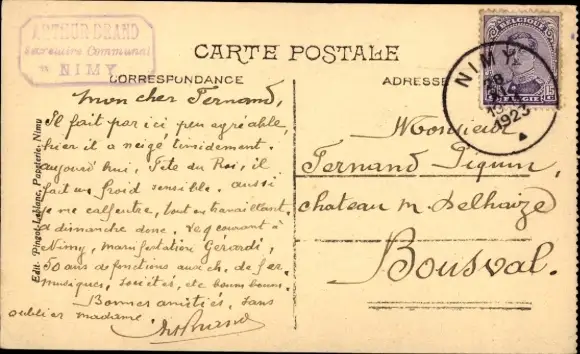 ARTHUR BRAND
Secrétaire Communal
NIMY
CARTE POSTALE
CORRESPONDANCE
ADRESSE
BELGIQUE
BELGIE
15
NIMY
1923
Mon cher Fernand,
Il fait par ici peu agréable,
hier il a neigé timidement.
aujourd'hui, Fête du Roi, il
fait un froid sensible. aussi
je me calfeutre, tout en travaillant.
a dimanche donc.
Nimy, manifestation Gérardi,
50 ans de fonctions aux ch. de fer.
musiques, sociétés, etc boum boum.
Bonnes amitiés, sans
oublier madame.
Monsieur
Fernand Piquin,
chateau m. Delhaize
Bousval.
Edit. Pingot-Leblanc, Papeterie, Nimy